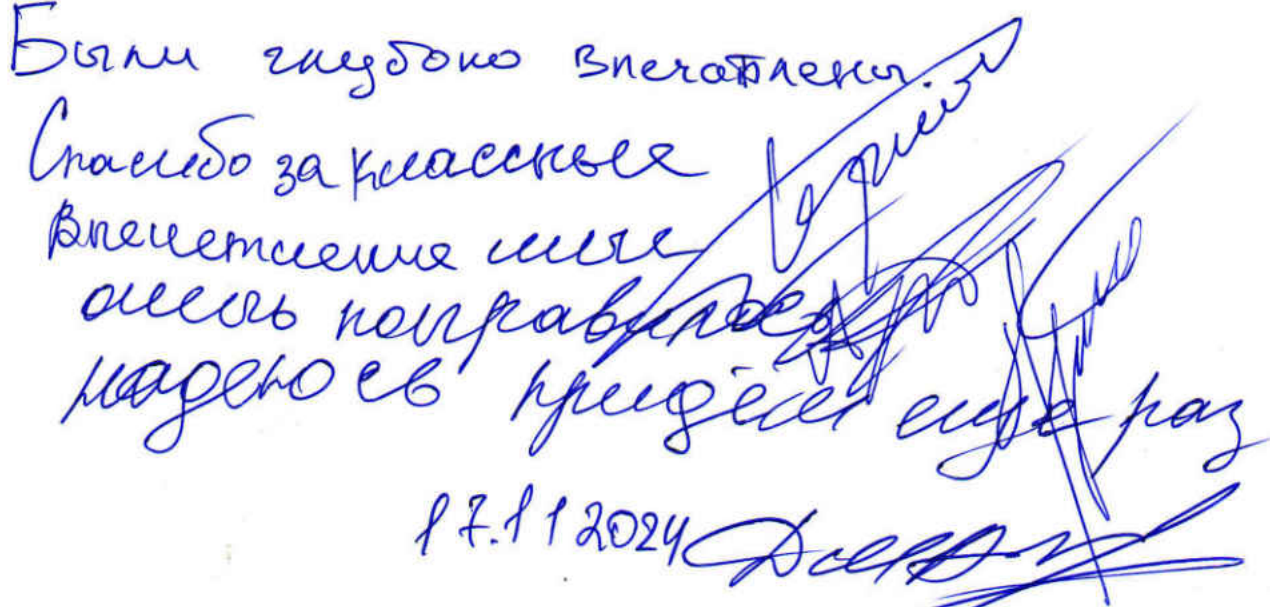 Были глубоко впечатлены
Спасибо за классные
впечетление мне
очень понравилось
надеюсь придём ещё раз
17.11 2024